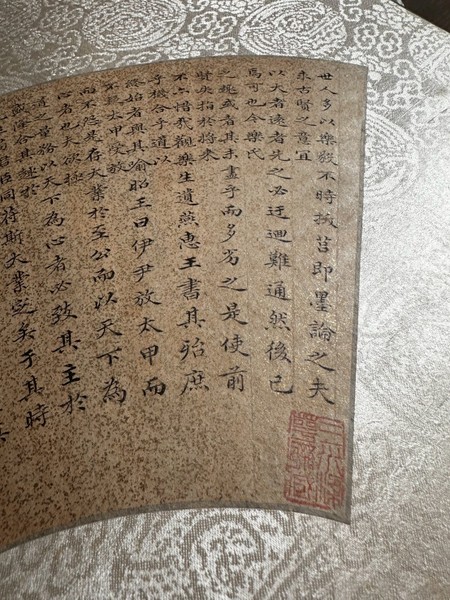 世人多以樂毅不時拔莒即墨論之夫
求古賢之意宜
以大者遠者先之必迂迴難通然後已
焉可也今樂氏
之趣或者其未盡乎而多劣之是使前
賢失指於將來
不亦惜哉觀樂生遺燕惠王書其殆庶
乎機合乎道以
終始者與其喻昭王曰伊尹放太甲而
不疑太甲受放
而不怨是存大業於至公而以天下為
心者也夫欲極
道之量務以天下為心者必致其主於
盛隆合其趣於
臣同符斯大業定矣于其時